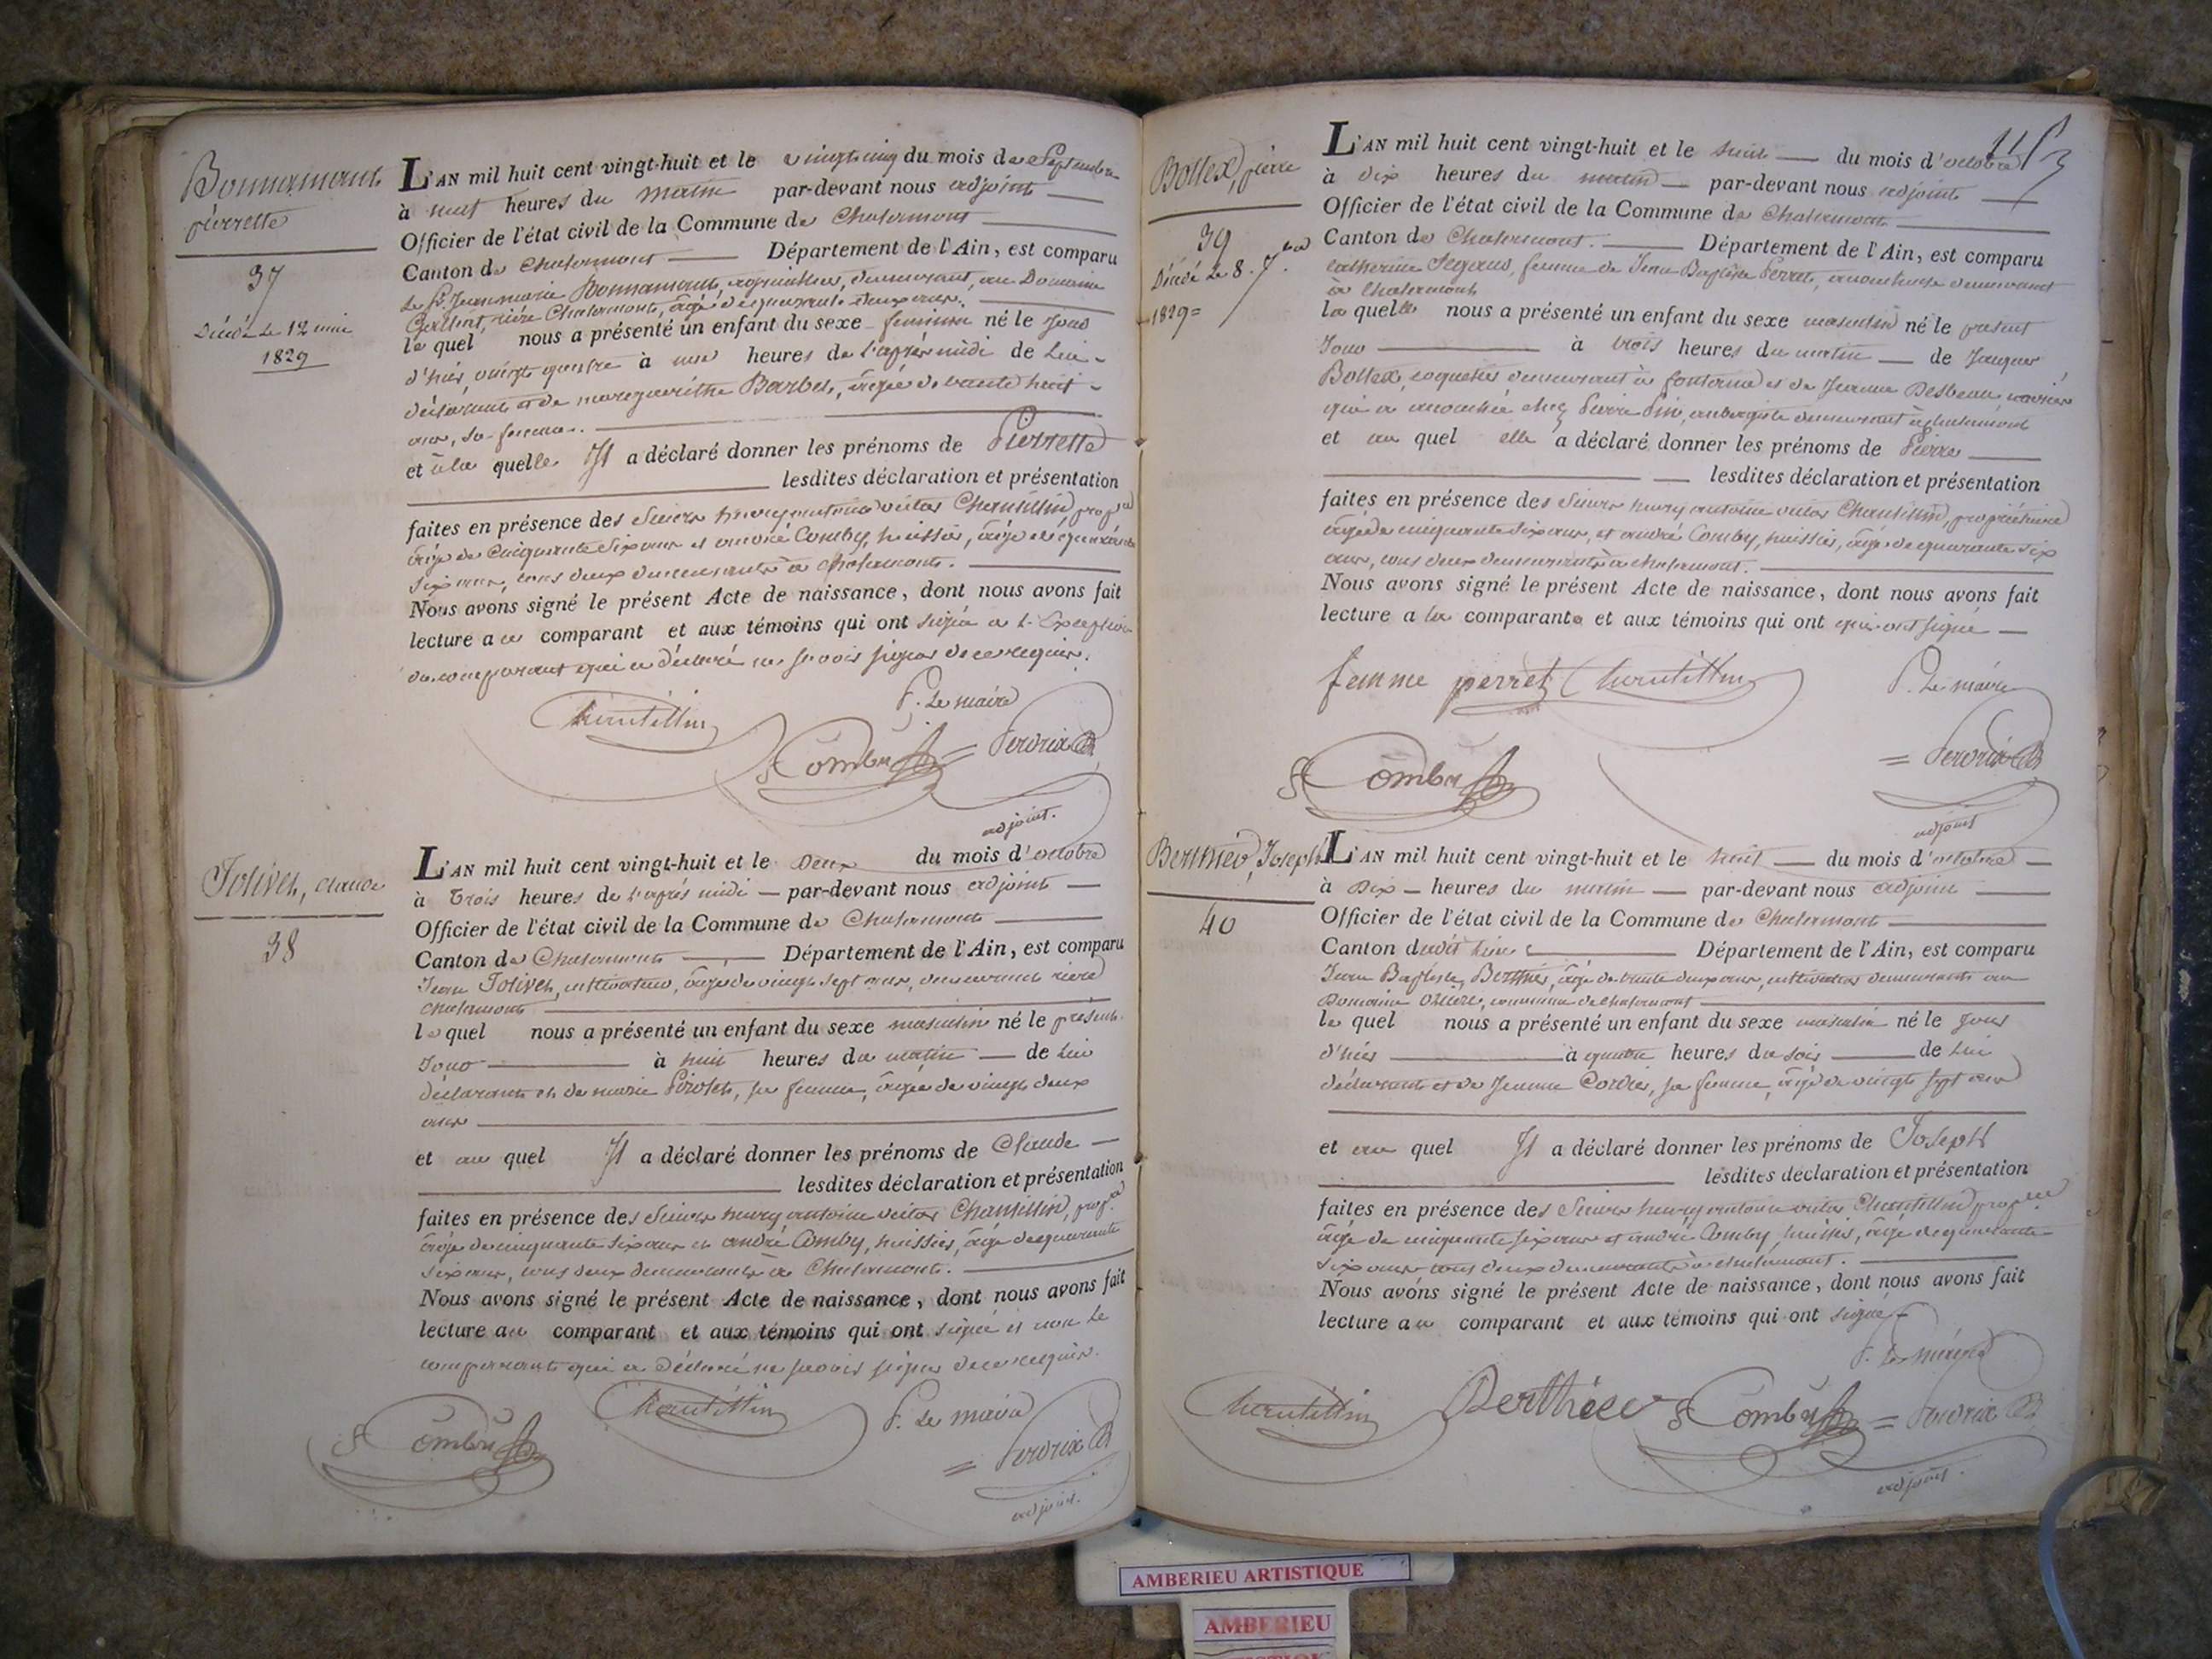 Bonnamant
pierrette
37
Décédé le 12 mai
1829
L'AN mil huit cent vingt-huit et le vingt cinq du mois de Septembre
à neuf heures du matin par-devant nous adjoint
Officier de l'état civil de la Commune de Chalamont
Canton de Chalamont Département de l'Ain, est comparu
le Sr. Jean marie Bonnamant, demeurant, au Domaine
rière Chalamont, âgé de quarante deux ans.
le quel nous a présenté un enfant du sexe feminin né le Jour
d'hier, vingt quatre à une heures de l'après midi de Lui
déclarant et de margueritte Barbet, âgée de trente huit
ans, sa femme.
et à la quelle Il a déclaré donner les prénoms de Pierrette
lesdites déclaration et présentation
faites en présence des Sieurs henry antoine victor Chantillin, prop.re
âgé de Cinquante Six ans et andré Comby, huissier, âgé de quarante
six ans, tous deux demeurants à Chalamont.
Nous avons signé le présent Acte de naissance, dont nous avons fait
lecture au comparant et aux témoins qui ont signé à l'Exception
du comparant qui a déclaré ne savoir signer de ce requis.
Chantillin
P. Le maire
Comby
Perdrix
adjoint.
Jolivet, Claude
38
L'AN mil huit cent vingt-huit et le Deux du mois d'octobre
à trois heures de l'après midi par-devant nous adjoint
Officier de l'état civil de la Commune de Chalamont
Canton de Chalamont Département de l'Ain, est comparu
Jean Jolivet, cultivateur, âgé de vingt sept ans, demeurant rière
Chalamont
le quel nous a présenté un enfant du sexe masculin né le présent
Jour à huit heures du matin de Lui
déclarant et de marie Pirolet, sa femme, âgée de vingt deux
ans
et au quel Il a déclaré donner les prénoms de Claude
lesdites déclaration et présentation
faites en présence des Sieurs henry antoine victor Chantillin, prop.re
âgé de cinquante six ans et andré Comby, huissier, âgé de quarante
six ans, tous deux demeurants à Chalamont.
Nous avons signé le présent Acte de naissance, dont nous avons fait
lecture au comparant et aux témoins qui ont signé et non le
comparant qui a Déclaré ne savoir signer de ce requis.
Comby
Chantillin
P. Le maire
Perdrix
adjoint.
Bollex, pierre
39
Décédé Le 8. 7.bre
1829
L'AN mil huit cent vingt-huit et le huit du mois d'octobre
à dix heures du matin par-devant nous adjoint
Officier de l'état civil de la Commune de Chalamont
Canton de Chalamont. Département de l'Ain, est comparu
Catherine femme de Jean Baptiste Perret, accoucheuse demeurant
à Chalamont
la quelle nous a présenté un enfant du sexe masculin né le présent
Jour à trois heures du matin de Jacques
Bollex, coquetier demeurant à et de Jeanne Desbeau mariés
qui a accouchée chez Pierre aubergiste demeurant à chalamont
et au quel elle a déclaré donner les prénoms de Pierre
lesdites déclaration et présentation
faites en présence des Sieurs henry antoine victor Chantillin, propriétaire
âgé de cinquante six ans, et andré Comby, huissier, âgé de quarante six
ans, tous deux demeurants à chalamont.
Nous avons signé le présent Acte de naissance, dont nous avons fait
lecture a la comparante et aux témoins qui ont qui ont signé
femme perret Chantillin
P. Le maire
Comby
Perdrix
adjoint
Berthier, Joseph
40
L'AN mil huit cent vingt-huit et le huit du mois d'octobre
à Dix heures du matin par-devant nous adjoint
Officier de l'état civil de la Commune de Chalamont
Canton dudit lieu Département de l'Ain, est comparu
Jean Baptiste Berthier, âgé de trente deux ans, cultivateur demeurant au
Domaine commune de Chalamont
le quel nous a présenté un enfant du sexe masculin né le Jour
d'hier à quatre heures du soir de Lui
déclarant et de Jeanne Cordier, sa femme, âgée de vingt sept ans
et au quel Il a déclaré donner les prénoms de Joseph
lesdites déclaration et présentation
faites en présence des Sieurs henry antoine victor Chantillin prop.re
âgé de cinquante six ans et andré Comby, huissier, âgé de quarante
six ans tous deux demeurants à chalamont.
Nous avons signé le présent Acte de naissance, dont nous avons fait
lecture au comparant et aux témoins qui ont signé
P. Le maire
Chantillin
Berthier
Comby
Perdrix
adjoint.
AMBERIEU ARTISTIQUE
AMBERIEU